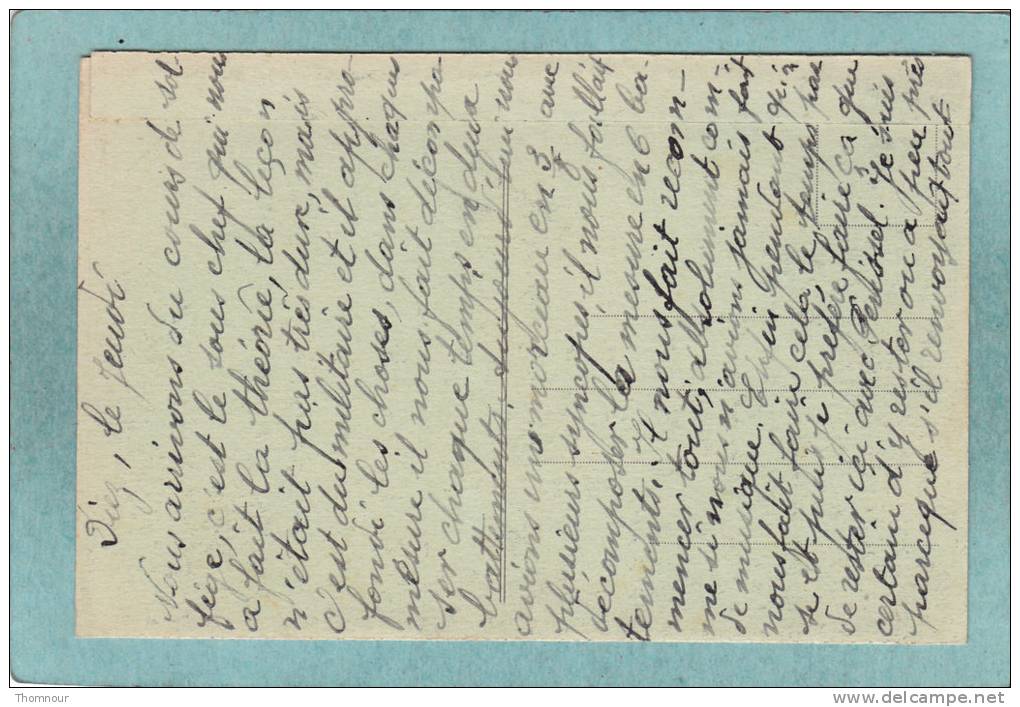 Diez, le Jeudi
Nous arrivons du cours de sol-
fège, c'est le sous chef qui nous
a fait la théorie, la leçon
n'était pas très dure, mais
c'est du militaire et il appro-
fondi les choses, dans chaque
mesure il nous fait décompo-
ser chaque temps en deux
battements, aujourd'hui nous
avions un morceau en 3/8 avec
plusieurs syncopes il nous fallait
décomposer la mesure en 6 ba-
tements, il nous fait recom-
mencer tout, absolument com-
me si nous n'avions jamais fait
de musique. Enfin pendant qu'il
nous fait faire cela le temps pas-
se et puis je préfère faire ça que
de rester ici avec. Je suis
certain d'y rester ou a peu près
parceque s'il renvoyait tout
Thomnour
www.delcampe.net